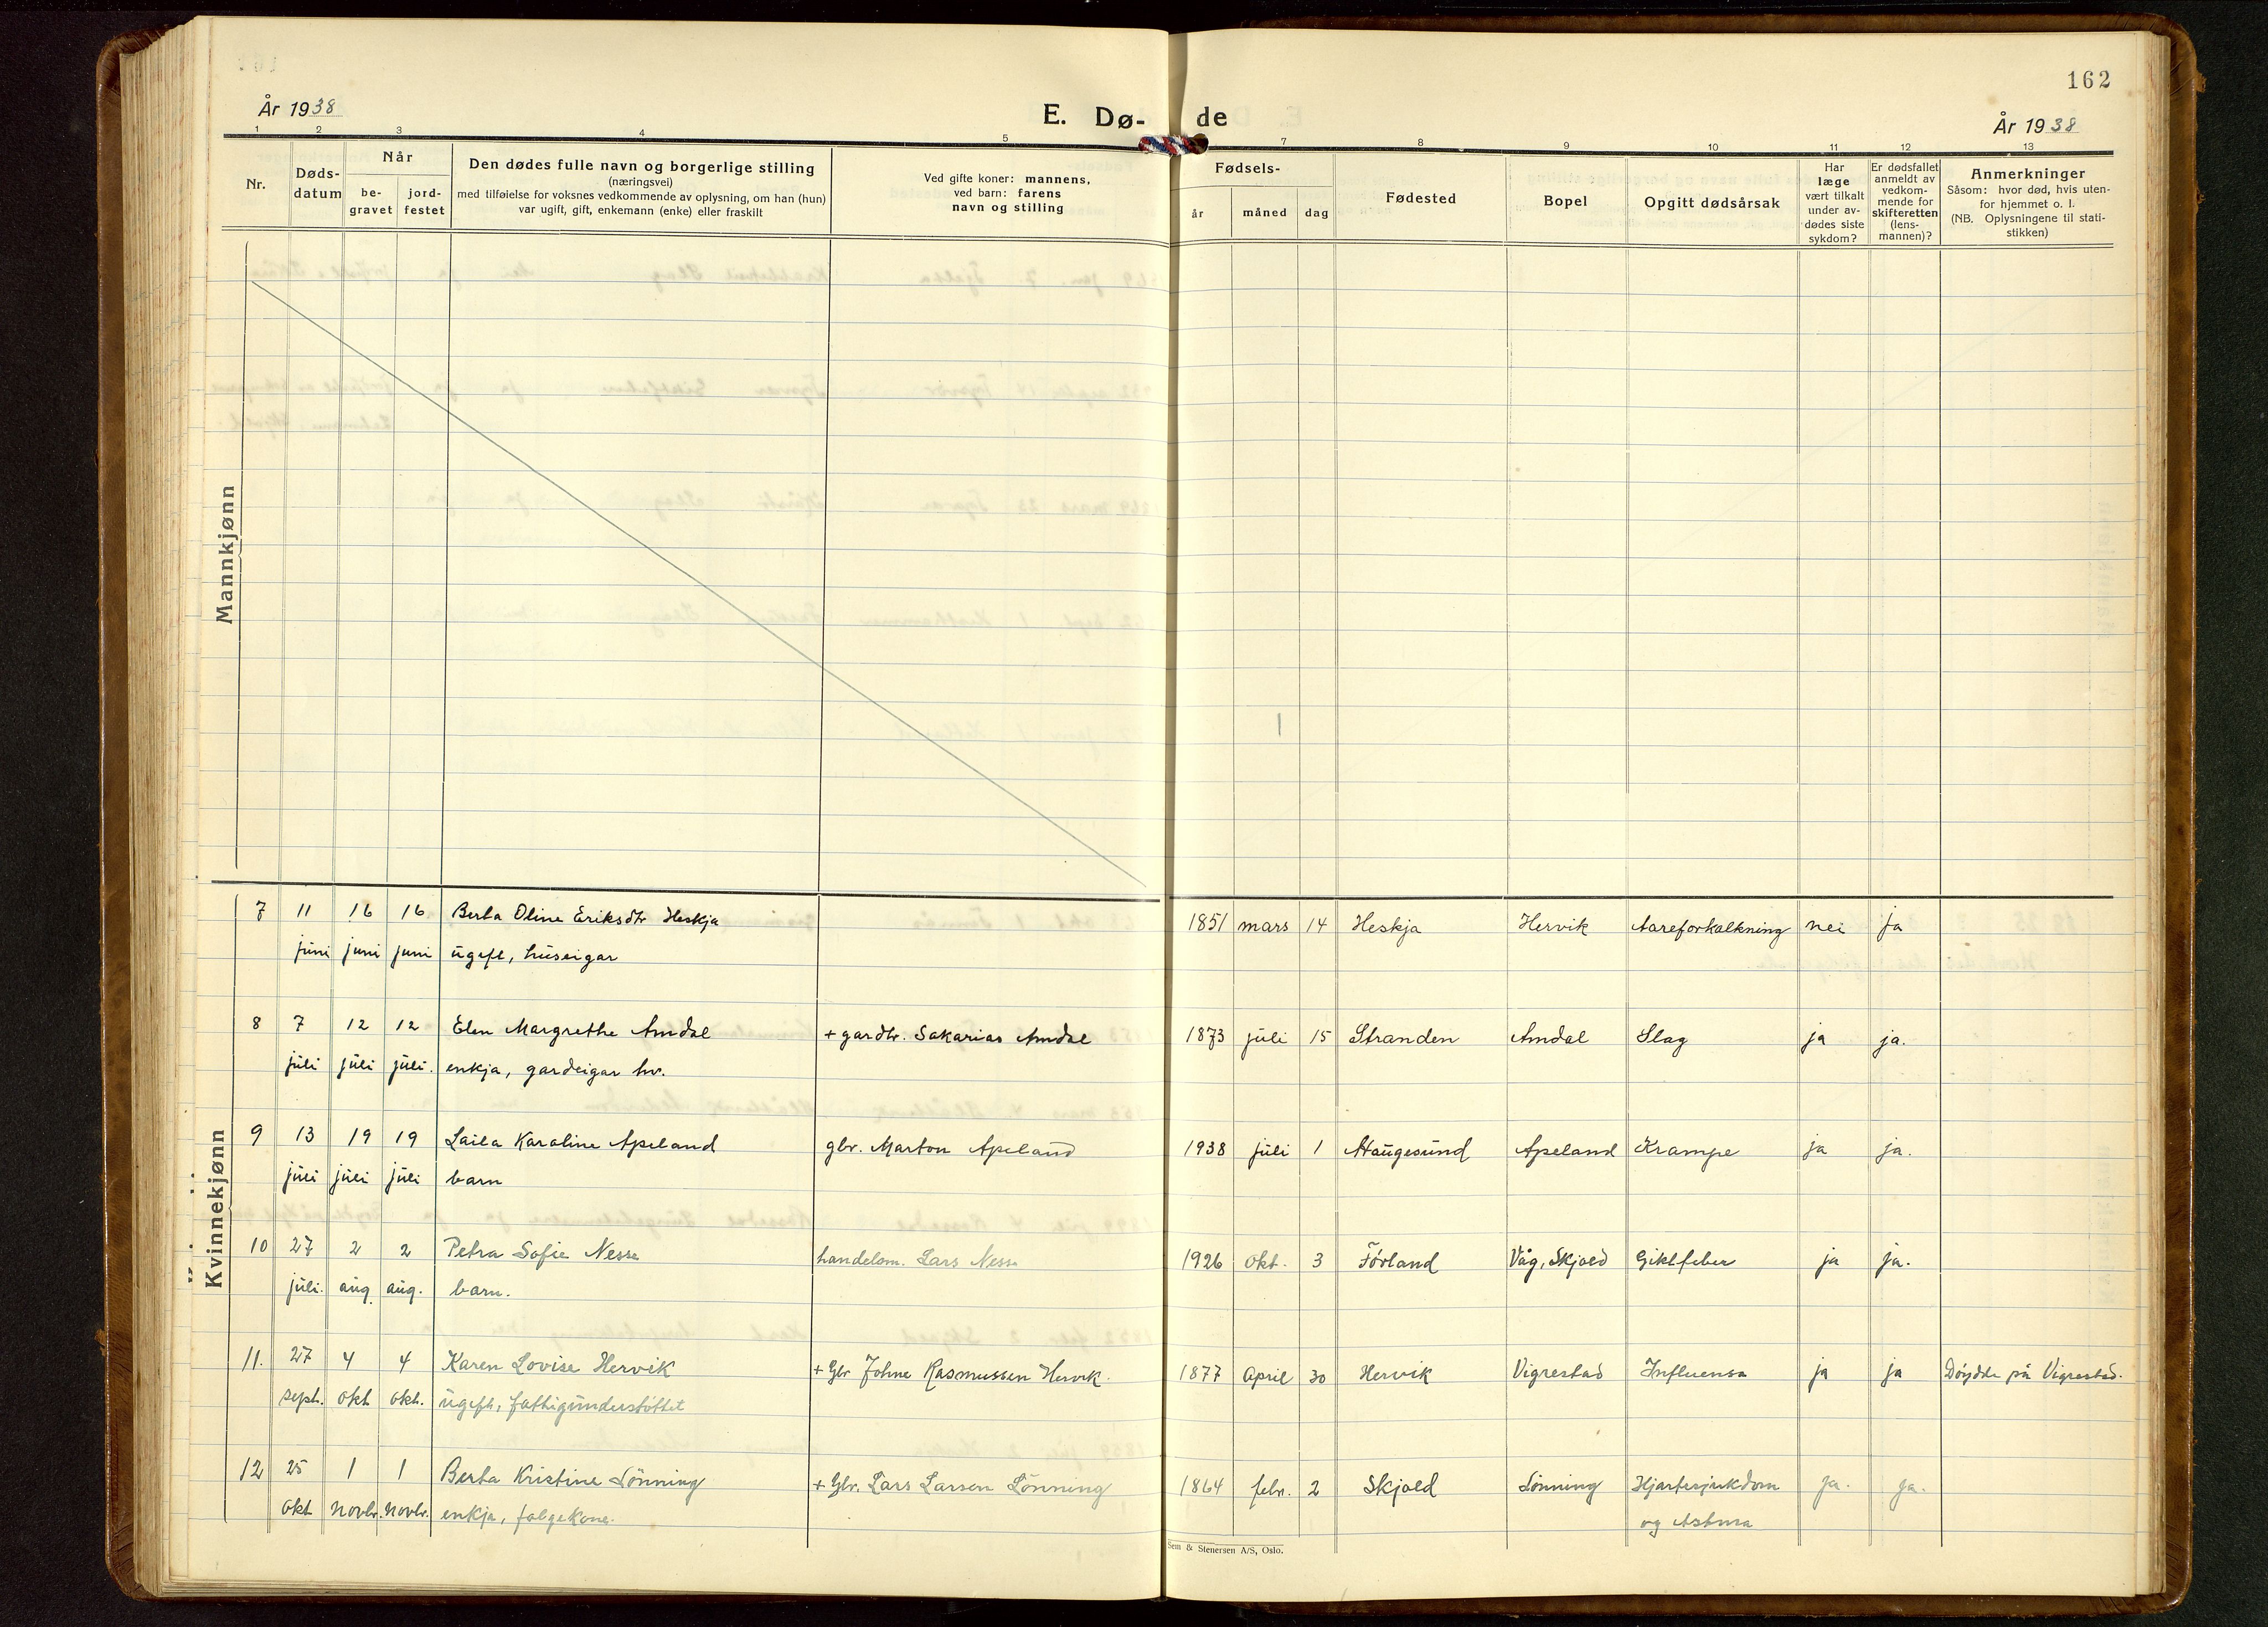 162
År 1938
E. Døde
År 1938
1 2 3 4 5 7 8 9 10 11 12 13
Nr.
Døds-
datum
Når
be-
gravet
jord-
festet
Den dødes fulle navn og borgerlige stilling
(næringsvei)
med tilføielse for voksnes vedkommende av oplysning, om han (hun)
var ugift, gift, enkemann (enke) eller fraskilt
Ved gifte koner: mannens,
ved barn: farens
navn og stilling
Fødsels-
år måned dag
Fødested
Bopel
Opgitt dødsårsak
Har
læge
vært tilkalt
under av-
dødes siste
sykdom?
Er dødsfallet
anmeldt av
vedkom-
mende for
skifteretten
(lens-
mannen)?
Anmerkninger
Såsom: hvor død, hvis uten-
for hjemmet o. l.
(NB. Oplysningene til stati-
stikken)
Mannkjønn
Kvinnekjønn
7 11 16 16 Berta Oline Eriksdtr Heskja 1851 mars 14 Heskja Hervik Aareforkalkning nei ja
juni juni juni ugift, huseigar
8 7 12 12 Elen Margrethe Amdal + gardbr. Sakarias Amdal 1873 juli 15 Stranden Amdal Slag ja ja.
juli juli juli. enkja, gardeigar hv.
9 13 19 19 Laila Karoline Apeland gbr. Marton Apeland 1938 juli 1 Haugesund Apeland Krampe ja ja.
juli juli juli barn
10 27 2 2 Petra Sofie Nesse handelsm. Lars Nesse 1926 okt. 3 Førland Våg, Skjold Giktfeber ja ja.
juli. aug. aug. barn.
11. 27 4 4 Karen Lovise Hervik + Gbr Johne Rasmussen Hervik. 1877 April 30 Hervik Vigrestad Influensa ja ja Døydde på Vigrestad.
sept. okt okt. ugift, fattigunderstøttet
12 25 1 1 Berta Kristine Lønning + Gbr. Lars Larsen Lønning 1864 febr. 2 Skjold Lønning Hjartesjukdom ja. ja.
okt novbr. novbr. enkja, folgekone. og Astma
Sem & Stenersen A/S, Oslo.